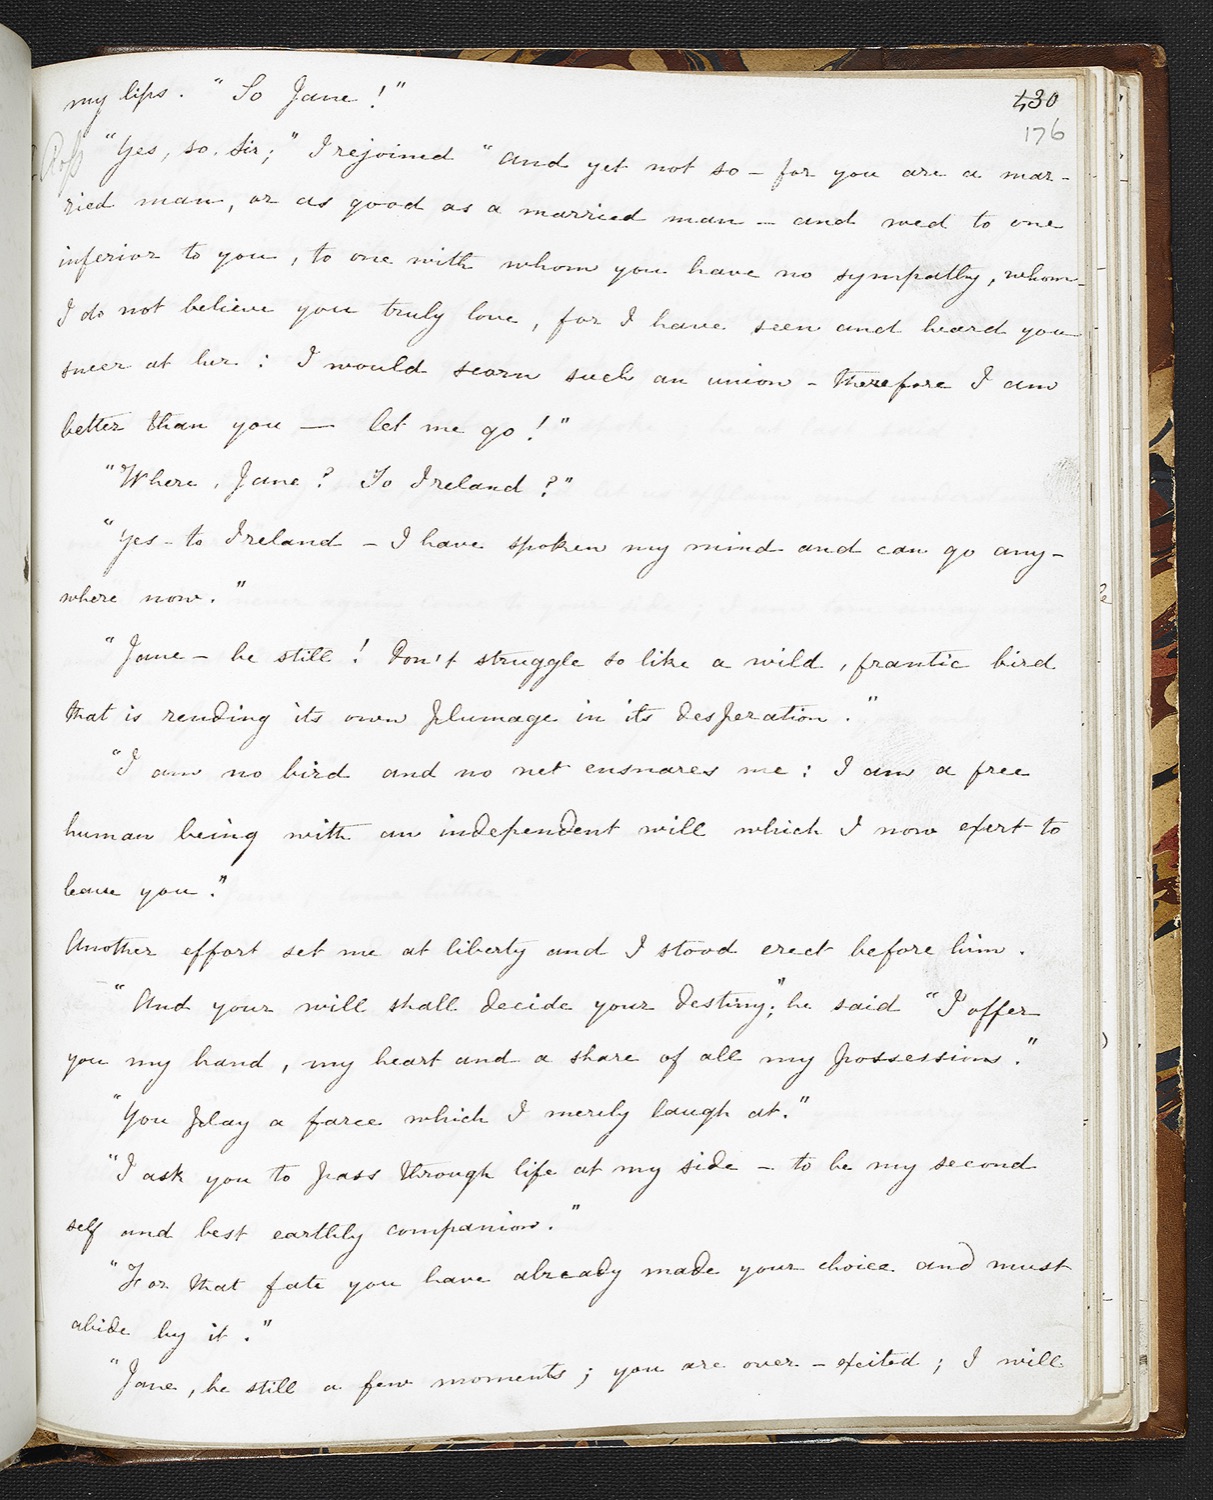 my lips. "So Jane!"
430
176
Ross
"Yes, so, Sir;" I rejoined "and yet not so – for you are a mar-
ried man, or as good as a married man – and wed to one
inferior to you, to one with whom you have no sympathy, whom
I do not believe you truly love, for I have seen and heard you
sneer at her: I would scorn such an union – therefore I am
better than you — let me go!"
"Where, Jane? To Ireland?"
"Yes – to Ireland – I have spoken my mind and can go any-
where now."
"Jane – be still! don't struggle so like a wild, frantic bird
that is rending its own plumage in its desperation."
"I am no bird and no net ensnares me: I am a free
human being with an independent will which I now exert to
leave you."
Another effort set me at liberty and I stood erect before him.
"And your will shall decide your destiny;" he said "I offer
you my hand, my heart and a share of all my possessions."
"You play a farce which I merely laugh at."
"I ask you to pass through life at my side – to be my second
self and best earthly companion."
"For that fate you have already made your choice and must
abide by it."
"Jane, be still a few moments; you are over-excited; I will